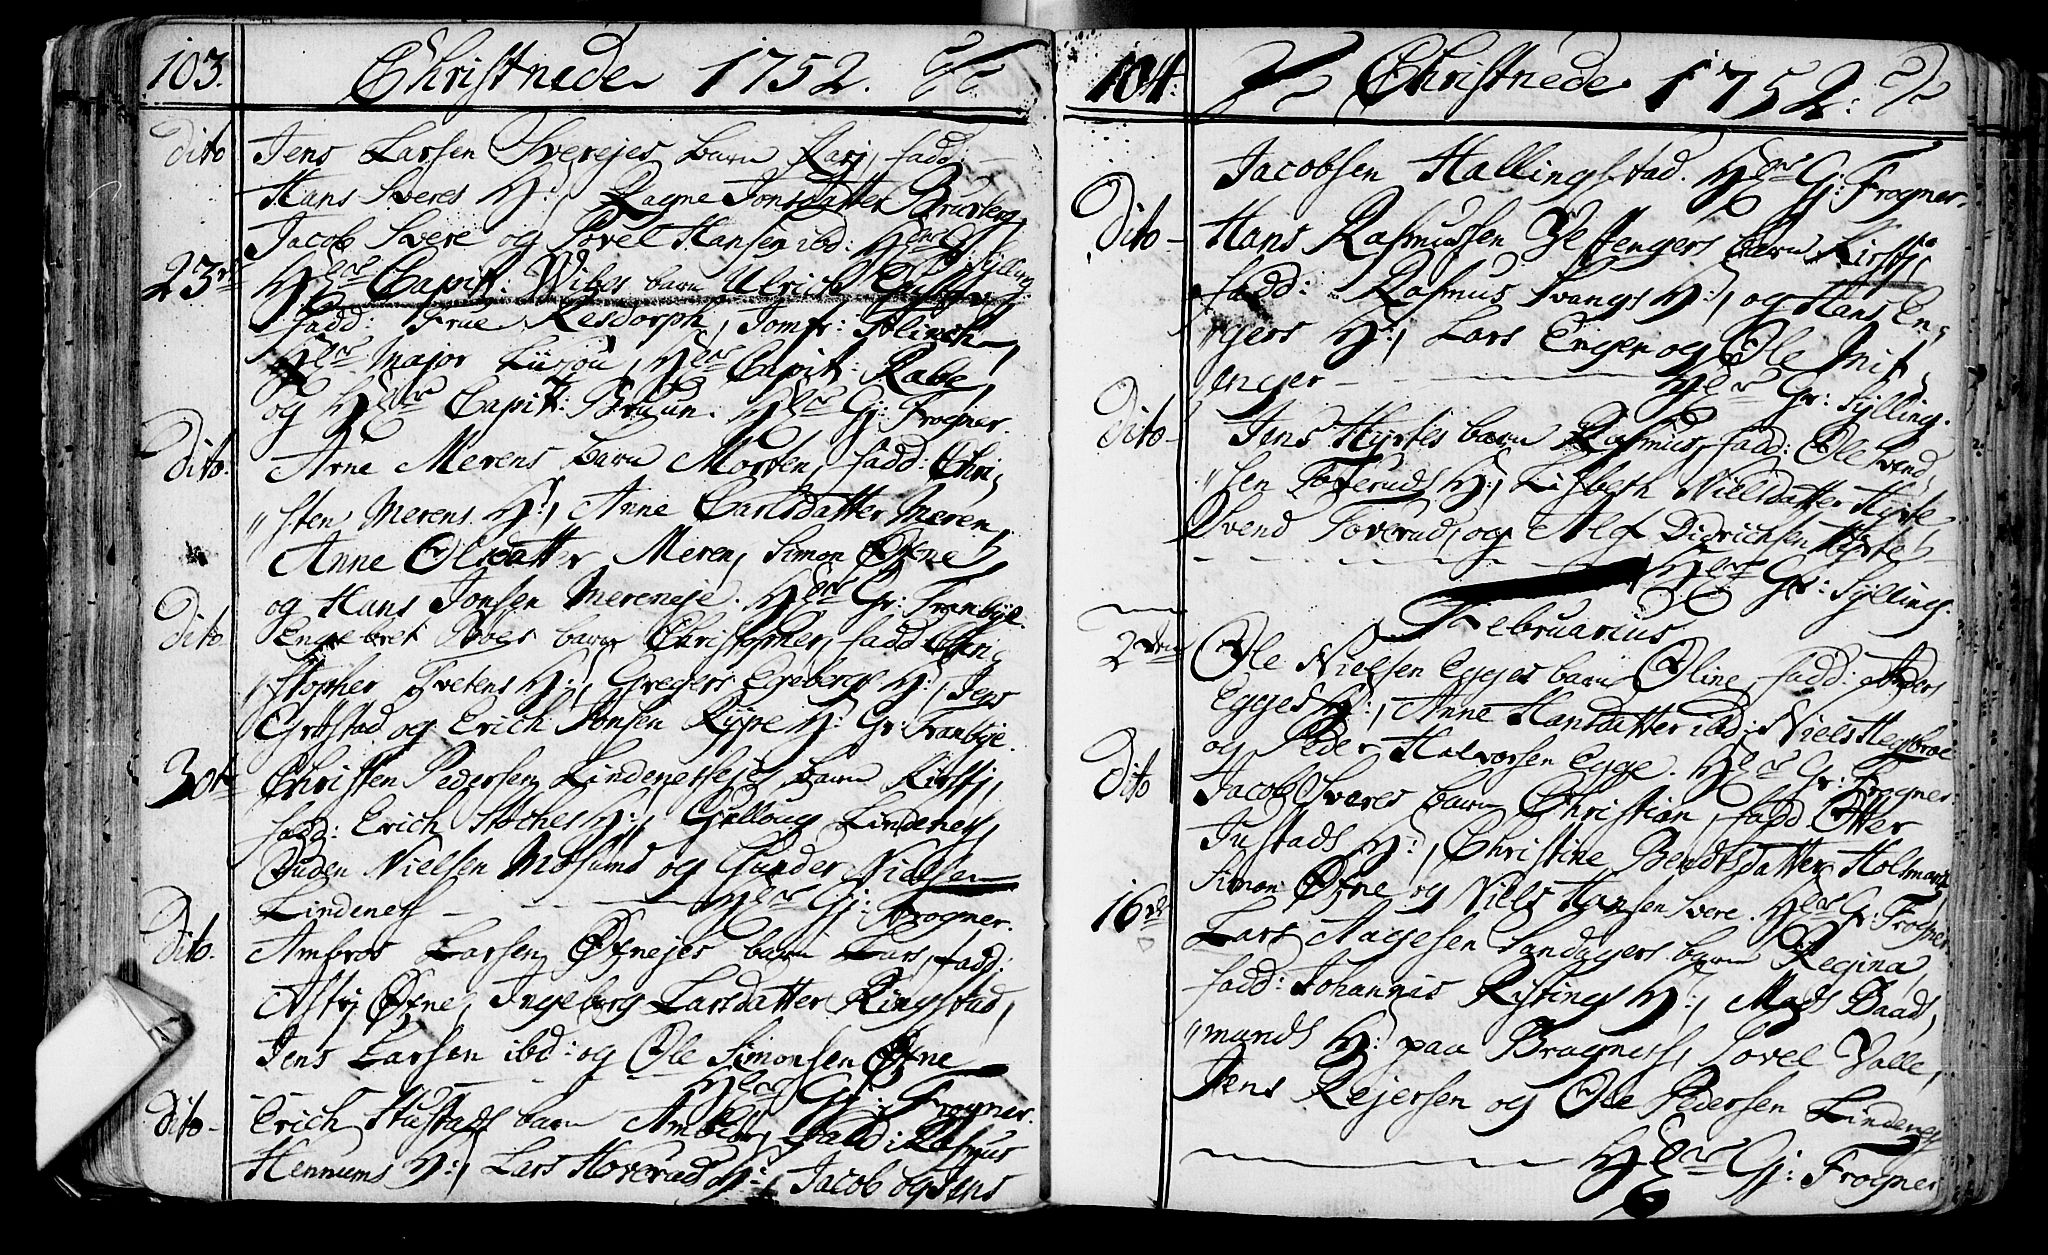 103. Christnede 1752.
dito Jens Larsen Sverejes barn Karj, fadd:
Hans Sveres H:, Ragne Jonsdatter Bruuberg,
Jacob Svere og Povel Hansen ibd: Hr Gr: Sylling.
23de Hr Capit: Wibes barn Ulrich
fadd: Frue Resdorph, Jomfr:
Hr Major Hr Capit: Rabe,
og Hr Capit: Bruun. Hr Gj: Frogner.
dito. Arne Merens barn Morten, fadd: Chri-
sten Merens H:, Anne Carlsdatter Meren,
Anne Olsdatter Meren, Simon Øfne
og Hans Jonsen Mereneje. Hr Gr: Tranbye.
dito Engebret barn Christopher, fadd: Chri-
stopher Tvetens H:, Gregers Egebergs H:, Jens
Grøstad og Erich Jonsen Rype H: Gr: Tranbye.
30te Christen Pedersen Lindenessejes barn Kirstj,
fadd: Erich Stoches H:, Gulloug Lindenes,
Auden Nielsen Mosund og Gunder Nielsen
Lindenes - Hr Gj: Frogner.
dito. Ambros Larsen Øfnejes barn Lars, fadd:
Øfne, Ingeborg Larsdatter Ringstad,
Jens Larsen ibd: og Ole Simonsen Øfne
Hr Gj: Frogner.
dito- Erich Stustads barn fadd: Rasmus
Hennums H:, Lars Hoveruds H:, Jacob og Jens
104. Christnede 1752.
Jacobsen Hallingstad. Hr Gj: Frogner.
Dito- Hans Rasmussen Vestengers barn Kirstj,
fadd: Rasmus Svangs H:, og Hans En-
gers H:, Lars Enger og Ole Mit-
enger - Hr Gr: Sylling.
Dito- Jens Hyrtes barn Rasmus, fadd: Ole Svend-
sen Toveruds H:, Lisbeth Nielsdatter Hyrte
Svend Toverud, og Alf Didrichsen Hyrte
Hr Gr: Sylling.
Februarius
2den Ole Nielsen Egges barn Oline, fadd: Anders
Egges H:, Anne Hansdatter ibd: Niels Hegbroe
og Peder Halvorsen Egge. Hr Gr: Frogner.
Dito Jacob Sveres barn Christian, fadd Otter
Justads H:, Christine Bendtsdatter Holtmark
Simon Øfne og Niels Hansen Svere. Hr Gr: Frogner
16de Lars Aagesen Sandagers barn Regina,
fadd: Johannis Ristings H:, Mads Baad-
mands H: paa Bragnes, Povel Valle,
Jens Rejersen og Ole Pedersen Lindenes
Hr Gj: Frogner